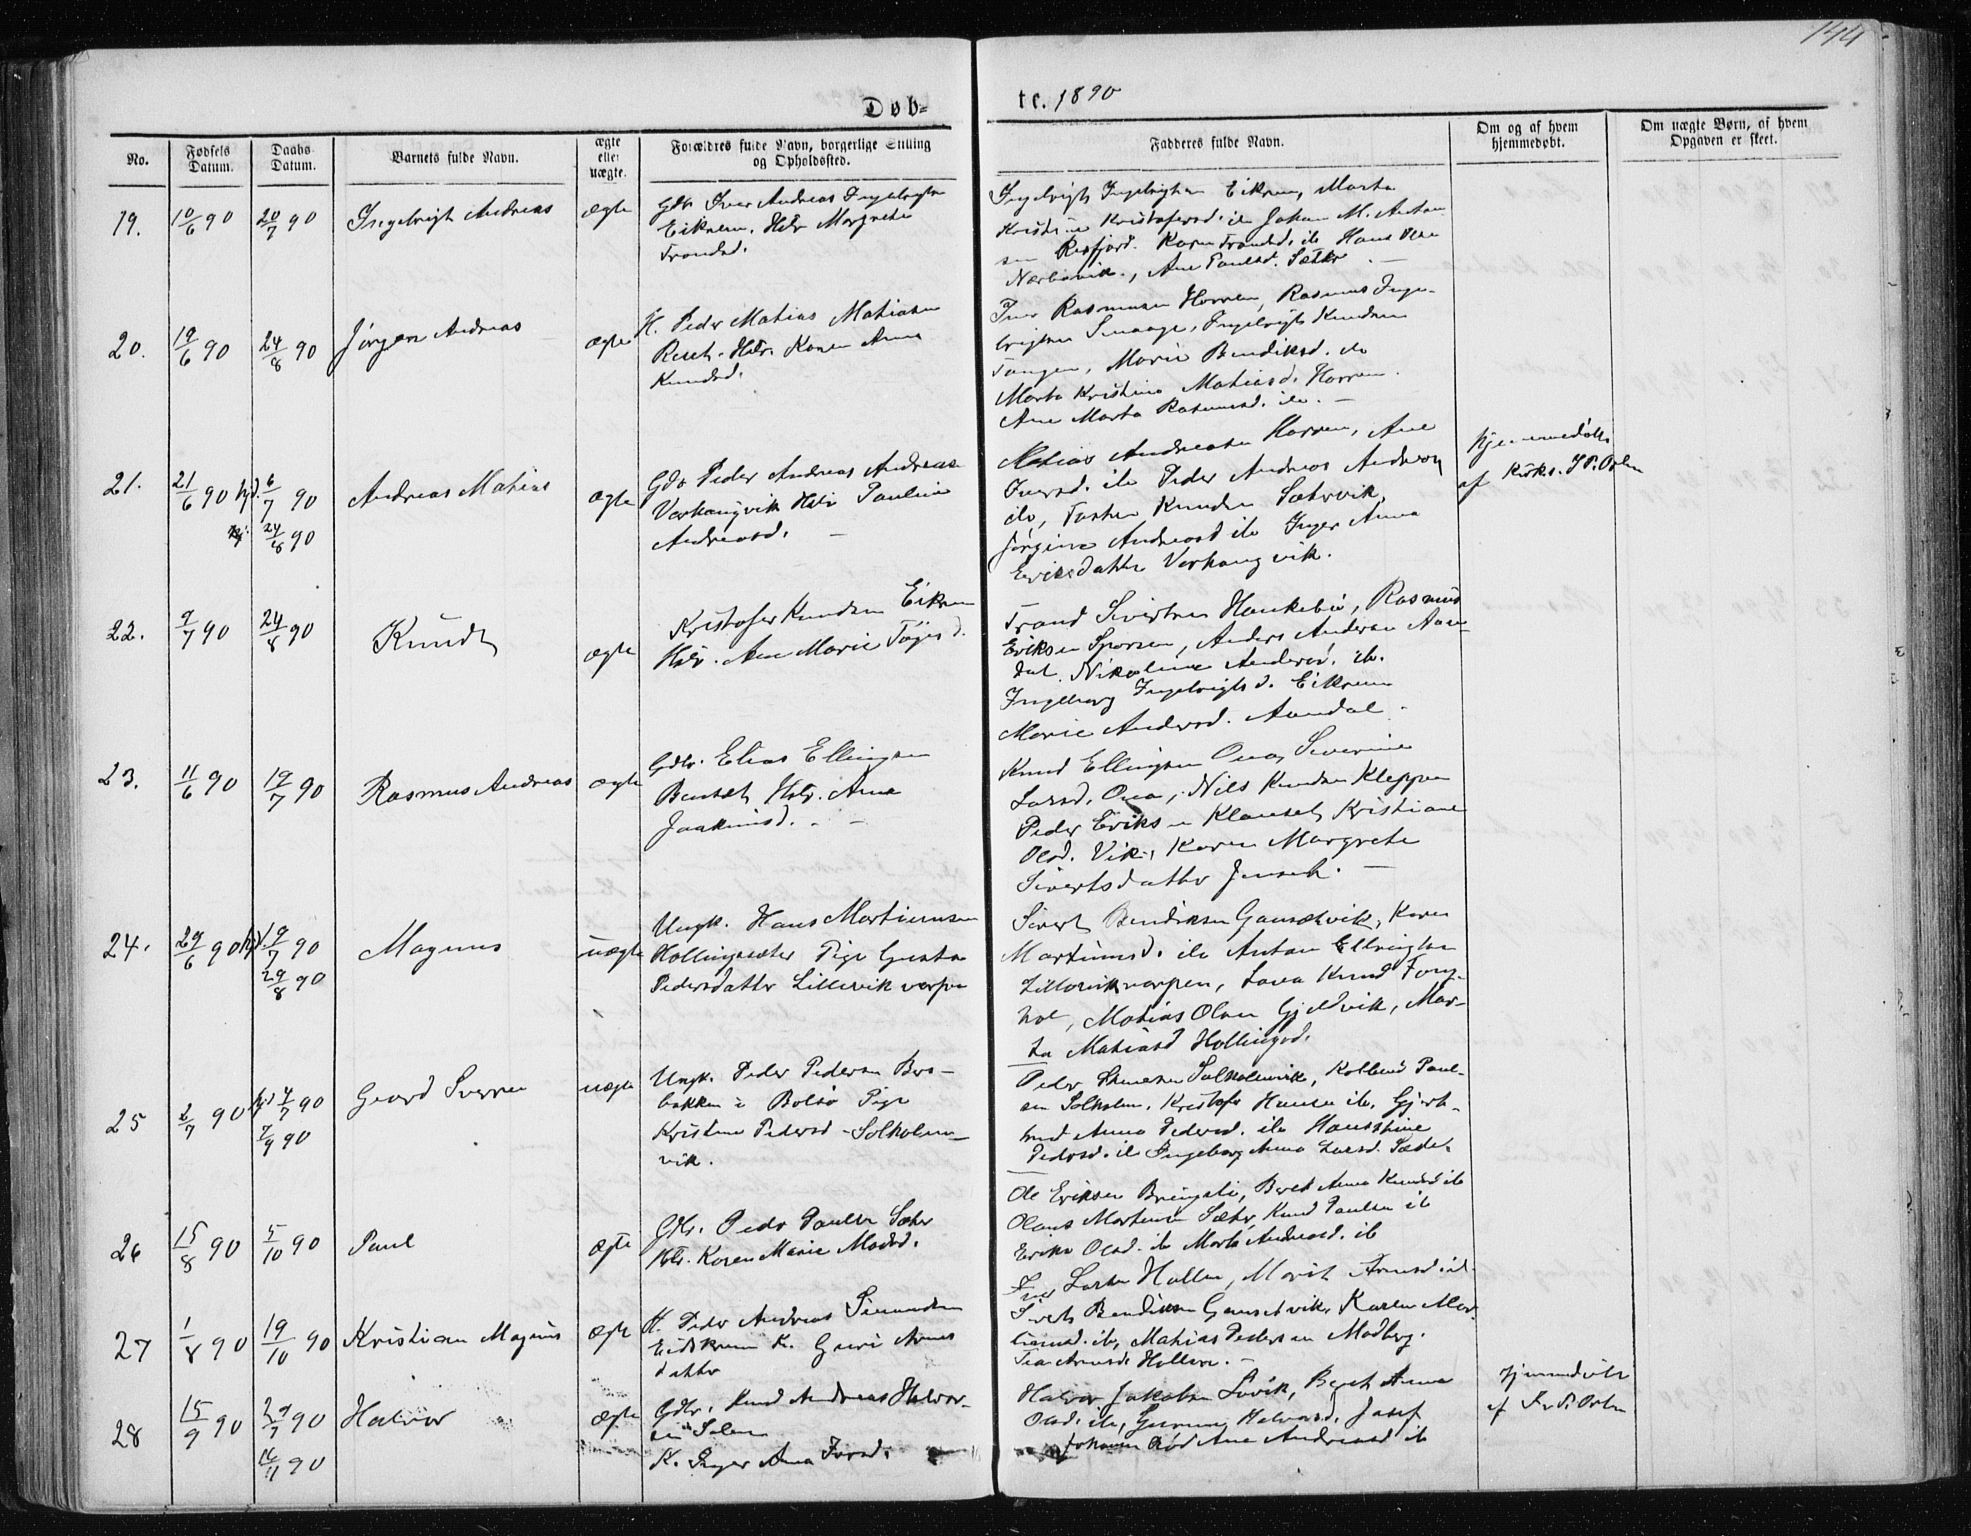 144
Døb-
te. 1890
No.
Fødsels Datum.
Daabs Datum.
Barnets fulde Navn.
ægte eller uægte.
Forældres fulde Navn, borgerlige Stilling og Opholdssted.
Fadderes fulde Navn.
Om og af hvem hjemmedøbt.
Om uægte Børn, af hvem Opgaven er skeet.
19. 10/6 90 20/7 90 Ingebrigt Andreas ægte Gdr. Iver Andreas Ingebrigtsen
Eikrem. Hstr Margrete
Trondsd.
Ingebrigt Ingebrigtsen Eikrem, Marta
Kristine Kristofersd. ib Johan M. Anton
sen Risfjord. Karen Trondsd. ib Hans Olsen
Nerbøvik., Ane Paulsd. Sæter. —
20. 19/6 90 24/8 90 Jørgen Andreas ægte H. Peder Matias Matiasen
Reset. Hstr. Karen Anna
Knudsd.
Iver Rasmusen Horrem, Rasmus Inge-
brigtsen Smaage, Ingebrigt Knudsen
Tangen, Marie Bendiksd. ib
Marta Kristine Matiasd. Horrem.
Ane Marta Rasmusd. ib. —
21. 21/6 90 hjd. 6/7 90 Andreas Matias ægte Gdr Peder Andreas Andreasen
24/8 90
Varhaugvik Hstr Pauline
Andreasd. —
Matias Andreasen Horrem, Ane
Iversd. ib Peder Andreas Andersen
ib, Torsten Knudsen Sætervik,
Jørgine Andreasd ib Inger Anna
Eriksdatter Varhaugvik.
hjemmedøbt
af Kirks. I P. Orten
22. 9/7 90 24/8 90 Knudt ægte Kristofer Knudsen Eikrem
Hstr. Ane Marie Tøgesd.
Trond Sivertsen Haukebø, Rasmus
Eriksen Sporsem, Anders Andersen Aaen-
dal, Nikoline Andersd. ib.
Ingeborg Ingebrigtsd. Eikrem
Marie Andersd. Aandal.
23. 11/6 90 19/7 90 Rasmus Andreas ægte Gdr. Elias Ellingsen
Bensæt, Hstr. Ane
Joakimsd. —
Knud Ellingsen Ona, Severine
Larsd. Ona, Nils Knudsen Kleppen
Peder Eriksen Klauset, Kristiane
Olsd. Vik, Karen Margrete
Sivertsdatter Jenset. —
24. 29/6 90 hjd. 19/7 90 Magnus uægte Ungk. Hans Martinusen
29/8 90
Hollingsæter Pige Gusta
Pedersdatter Lillevikvarpen
Sivert Bendiksen Gansetvik, Karen
Martinusd. ib Anton Ellingsen
Lillevikvarpen, Lava Knud Fary-
hol, Matias Olsen Gjeldvik, Mar-
ta Matiasd Hollingsd.
25 2/7 90 hjd 4/7 90 Gerard Sverre uægte Ungk. Peder Pedersen Bers-
7/9 90
bakken i Bolsø Pige
Kristine Pedersd Solholm-
vik.
Peder Hansen Solholmvik, Kolbein Paul-
sen Solholm, Kristofer Hansen ib, Gjert-
rud Anna Pedersd. ib Hansine
Pedersd. ib Ingeborg Anna Larsd. Sæter.
26 15/8 90 5/10 90 Paul ægte Gdr. Peder Paulsen Sæter
Hstr. Karen Marie Madsd.
Ole Eriksen Bringsli, Beret Anna Knudsd ib
Olaus Martinsen Sæter, Knud Paulsen ib
Erika Olsd. ib Marta Andreasd. ib
27 1/8 90 19/10 90 Kristian Magnus ægte H. Peder Andreas Simonsen
Eidskrem K. Guri Arnes
datter
Iver Larsen Hollen, Marit Arnesd ib
Sivert Bendiksen Gansetvik, Karen Mar
tinusd. ib, Matias Pedersen Modberg.
Tea Arnesd. Hollen. —
28 15/9 90 29/9 90 Halvor ægte Gdr. Knud Andreas Halvor-
16/11 90
sen Solem
K. Inger Ana Iversd.
Halvor Jakobsen Løvik, Beret Anna
Olsd. ib, Gurine Halvorsd. Josef
Johansen Rød Ane Andreasd ib
hjemmedøbt
af I. P. Orten